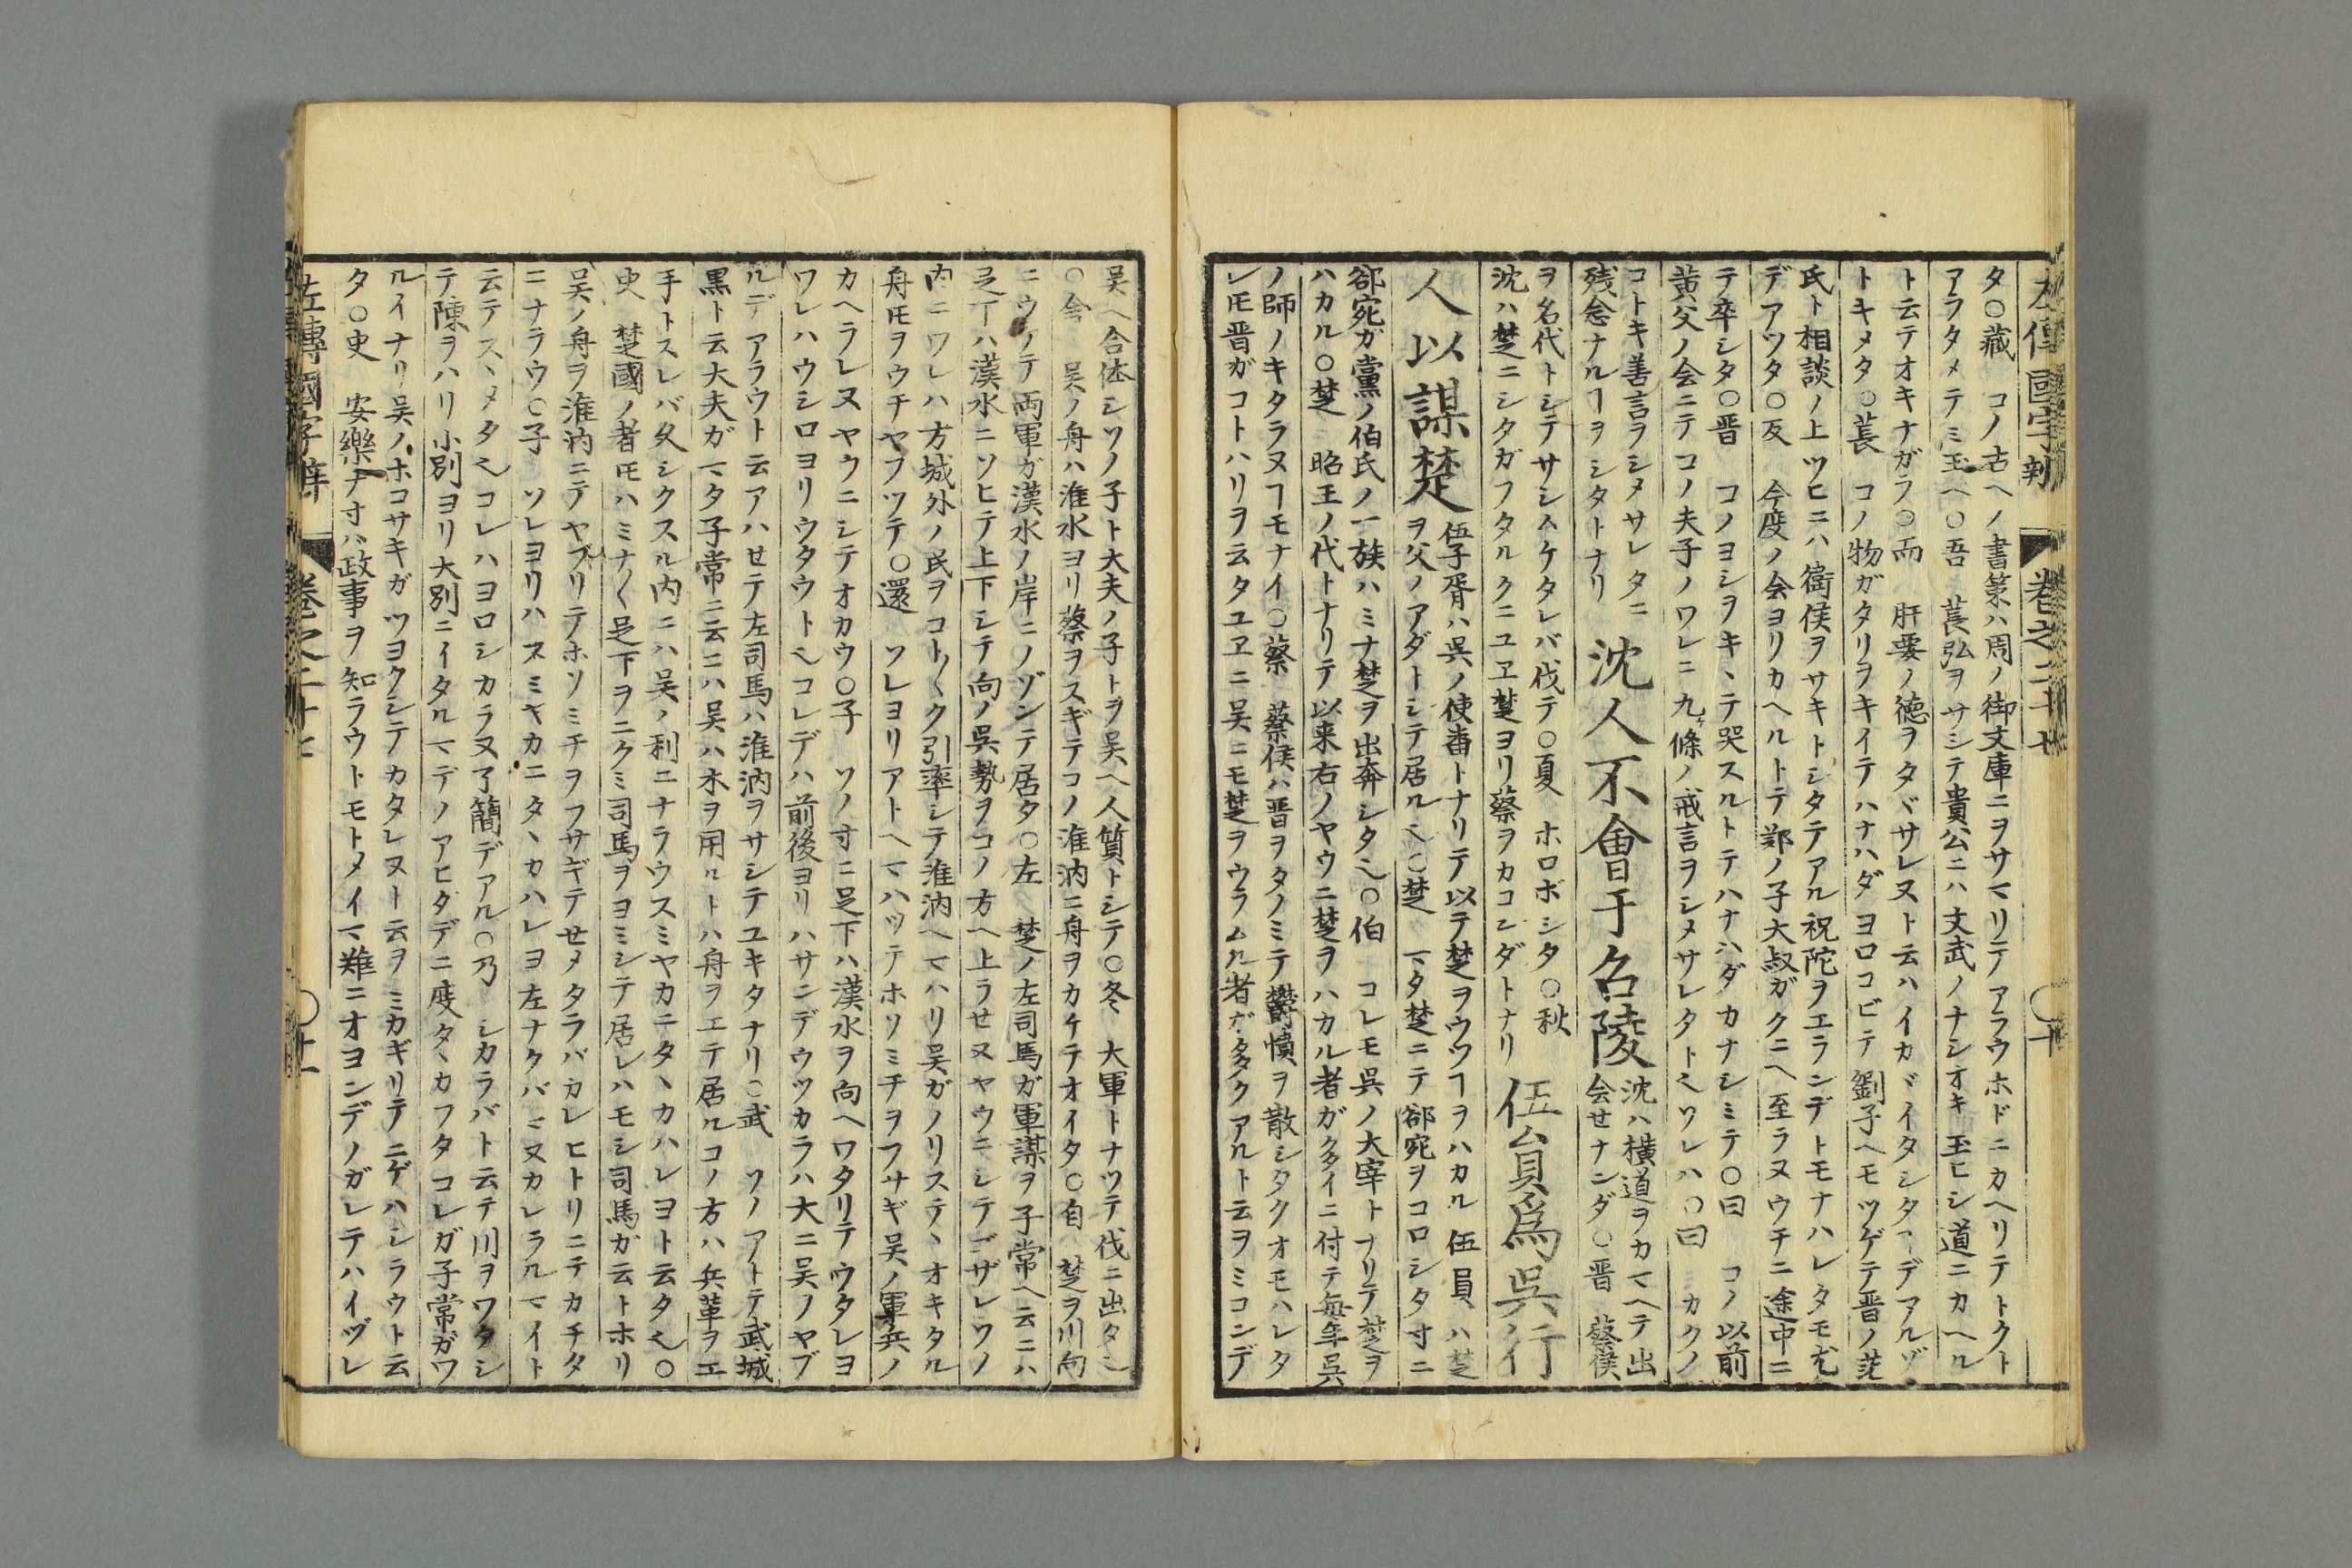 左傳國字辨 卷之二十七 ○十
タ○藏 コノ古ヘノ書策ハ周ノ御文庫ニヲサマリテアラウホドニカヘリテトクト
アラタメテミ玉ヘ○吾 萇弘ヲサシテ貴公ニハ文武ノナシオキ玉ヒシ道ニカヘル
ト云テオキナガラ○而 肝要ノ徳ヲタヾサレヌト云ハイカヾイタシタヿデアルゾ
トキメタ○萇 コノ物ガタリヲキイテハナハダヨロコビテ劉子ヘモツゲテ晋ノ范
氏ト相談ノ上ツヒニハ衞侯ヲサキトシタテアル祝陀ヲエランデトモナハレタモ尤
デアツタ○反 今度ノ会ヨリカヘルトテ鄭ノ子大叔ガクニヘ至ラヌウチニ途中ニ
テ卒シタ○晋 コノヨシヲキヽテ哭スルトテハナハダカナシミテ○曰 コノ以前
黄父ノ会ニテコノ夫子ノワレニ九ケ條ノ戒言ヲシメサレタト也ソレハ○曰 カクノ
コトキ善言ヲシメサレタニ
残念ナルヿヲシタトナリ
沈人不會于召陵
沈ハ横道ヲカマヘテ出
会セナンダ○晋 蔡侯
ヲ名代トシテサシムケタレバ伐テ○夏 ホロボシタ○秋
沈ハ楚ニシタガフタルクニユヱ楚ヨリ蔡ヲカコンダトナリ
伍員爲呉行
人以謀楚
伍子胥ハ呉ノ使番トナリテ以テ楚ヲウツヿヲハカル伍員ハ楚
ヲ父ノアダトシテ居ル也○楚 マタ楚ニテ郤宛ヲコロシタ寸ニ
郤宛ガ黨ノ伯氏ノ一族ハミナ楚ヲ出奔シタ也○伯 コレモ呉ノ大宰トナリテ楚ヲ
ハカル○楚 昭王ノ代トナリテ以来右ノヤウニ楚ヲハカル者ガ多イニ付テ毎年呉
ノ師ノキタラヌヿモナイ○蔡 蔡侯ハ晋ヲタノミテ鬱憤ヲ散シタクオモハレタ
レ𪜈晋ガコトハリヲ云タユヱニ呉ニモ楚ヲウラムル者ガ多クアルト云ヲミコンデ
呉ヘ合体シソノ子ト大夫ノ子トヲ呉ヘ人質トシテ○冬 大軍トナツテ伐ニ出タ也
○舎 呉ノ舟ハ淮水ヨリ蔡ヲスギテコノ淮汭ニ舟ヲカケテオイタ○自 楚ヲ川向
ニウケテ両軍ガ漢水ノ岸ニノゾンテ居タ○左 楚ノ左司馬ガ軍謀ヲ子常ヘ云ニハ
足下ハ漢水ニソヒテ上下シテ向ノ呉勢ヲコノ方ヘ上ラせヌヤウニシテゴザレソノ
内ニワレハ方城外ノ民ヲコト〱ク引率シテ淮汭ヘマハリ呉ガノリステヽオキタル
舟𪜈ヲウチヤブツテ○還 ソレヨリアトヘマハツテホソミチヲフサギ呉ノ軍兵ノ
カヘラレヌヤウニシテオカウ○子 ソノ寸ニ足下ハ漢水ヲ向ヘワタリテウタレヨ
ワレハウシロヨリウタウト也コレデハ前後ヨリハサンデウツカラハ大ニ呉ノヤブ
ルデアラウト云アハせテ左司馬ハ淮汭ヲサシテユキタナリ○武 ソノアトテ武城
黒ト云大夫ガマタ子常ニ云ニハ呉ハ木ヲ用ルトハ舟ヲエテ居ルコノ方ハ兵革ヲエ
手トスレバ久シクスル内ニハ呉ノ利ニナラウスミヤカニタヽカハレヨト云タ也○
史 楚國ノ者𪜈ハミナ〱足下ヲニクミ司馬ヲヨミシテ居レハモシ司馬ガ云トホリ
呉ノ舟ヲ淮汭ニテヤブリテホソミチヲフサギテせメタラバカレヒトリニテカチタ
ニナラウ○子 ソレヨリハスミヤカニタヽカハレヨ左ナクバマヌカレラルマイト
云テスヽメタ也コレハヨロシカラヌ了簡デアル○乃 シカラバト云テ川ヲワタシ
テ陳ヲハリ小別ヨリ大別ニイタルマデノアヒダデ二度タヽカフタコレガ子常ガワ
ルイナリ呉ノホコサキガツヨクシテカタレヌト云ヲミカギリテニゲハシラウト云
タ○史 安樂ナ寸ハ政事ヲ知ラウトモトメイマ難ニオヨンデノガレテハイヅレ
左傳國字辨 卷之二十七